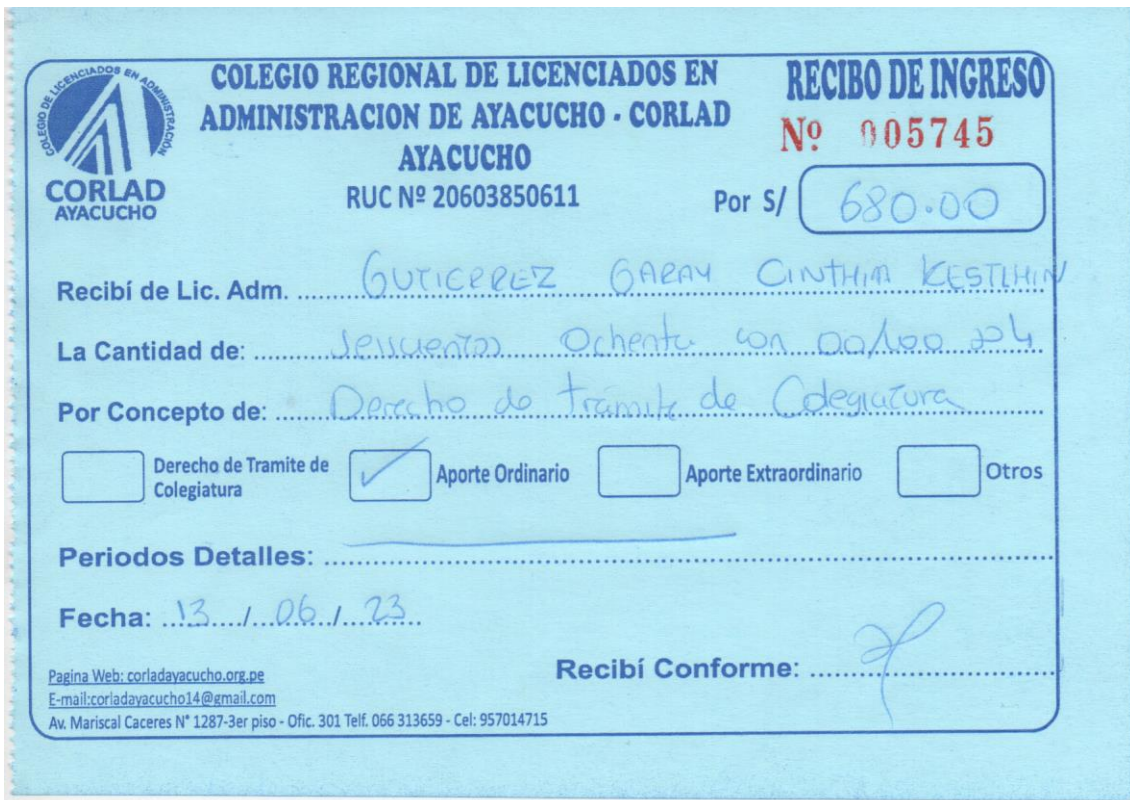 COLEGIO DE LICENCIADOS EN ADMINISTRACIÓN
CORLAD
AYACUCHO
COLEGIO REGIONAL DE LICENCIADOS EN
ADMINISTRACION DE AYACUCHO - CORLAD
AYACUCHO
RUC Nº 20603850611
RECIBO DE INGRESO
Nº 005745
Por S/ 680.00
Recibí de Lic. Adm. GUTIERREZ GARAY CINTHIA KESTLHIN
La Cantidad de: Ochenta con 00/100
Por Concepto de: Derecho de tramite de Colegiatura
Derecho de Tramite de
Colegiatura
✓ Aporte Ordinario
Aporte Extraordinario
Otros
Periodos Detalles:
Fecha: 13/06/23
Recibí Conforme:
Pagina Web: corladayacucho.org.pe
E-mail:corladayacucho14@gmail.com
Av. Mariscal Caceres N° 1287-3er piso - Ofic. 301 Telf. 066 313659 - Cel: 957014715